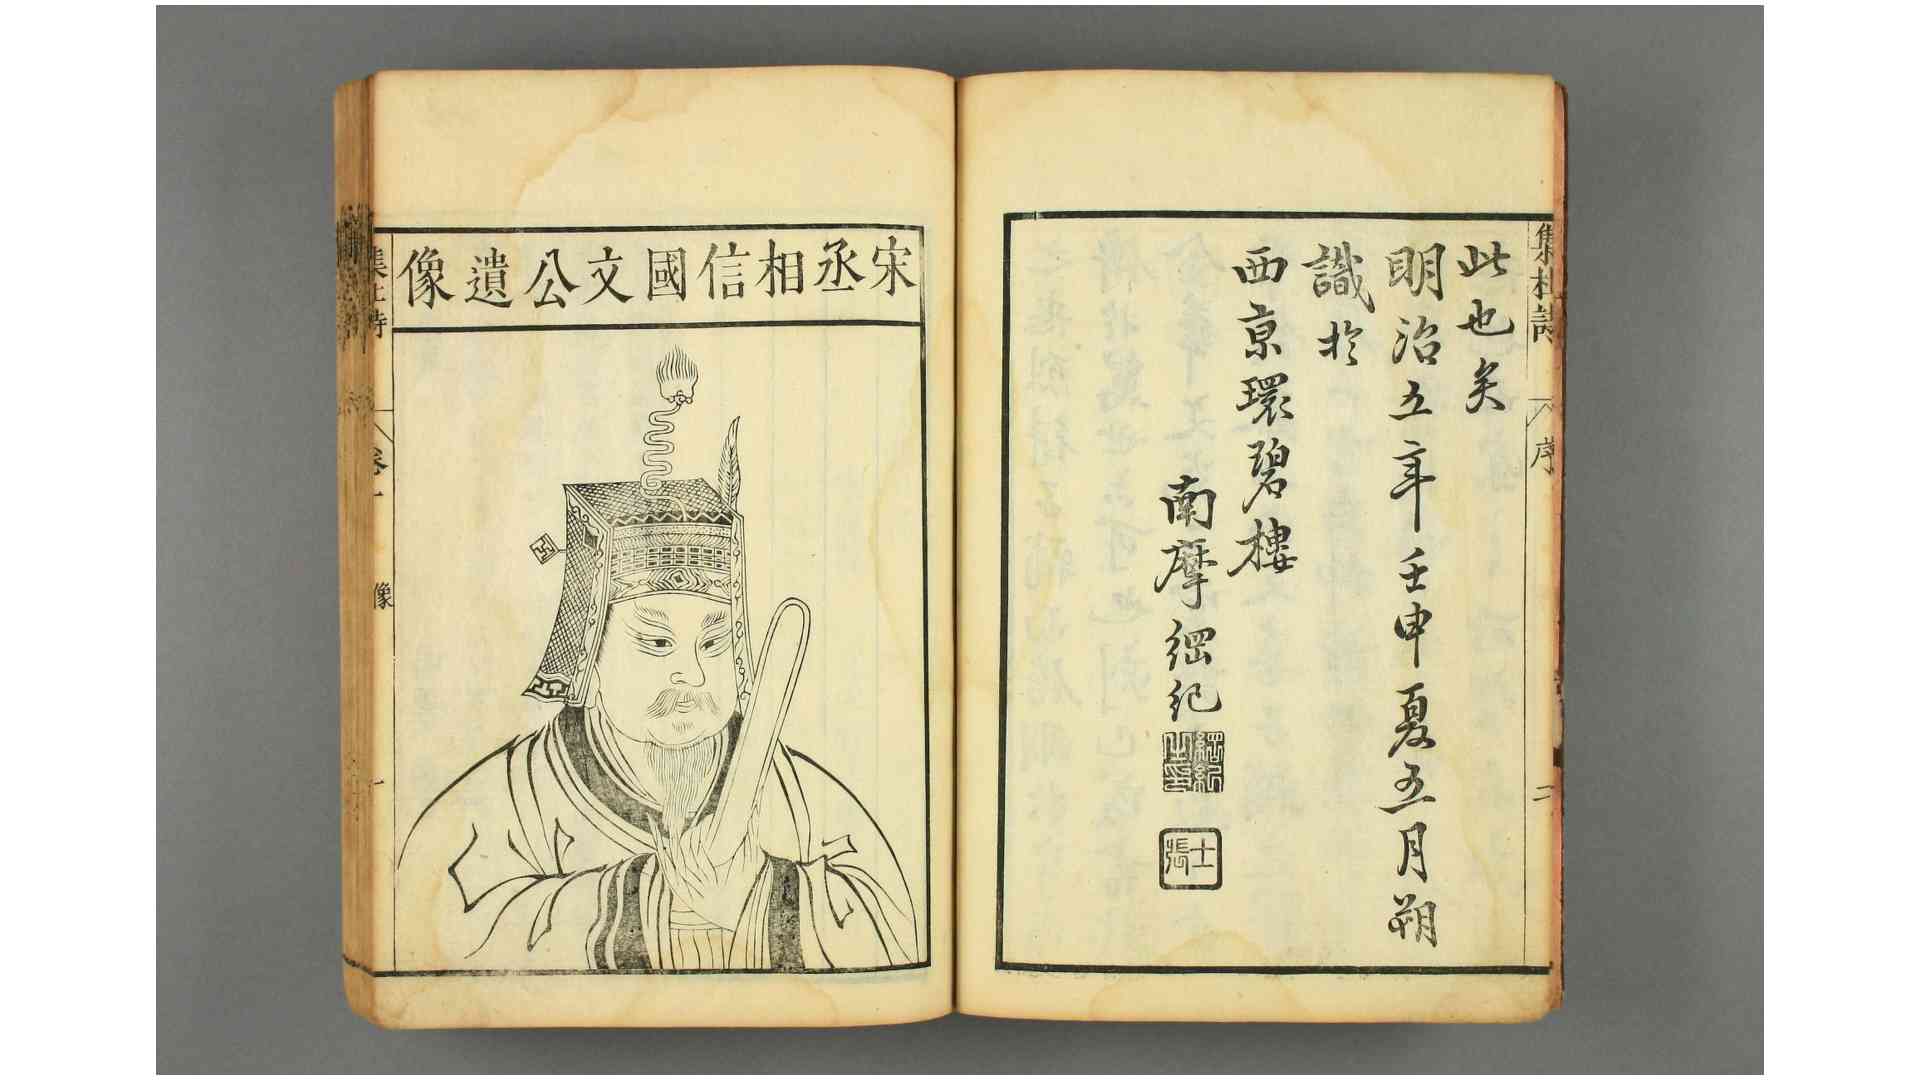 集杜詩
序
二
此也矣
明治五年壬申夏五月朔
識於
西京環碧樓
南摩綱紀
綱紀
士張
宋丞相信國文公遺像
集杜詩
卷一
像
一